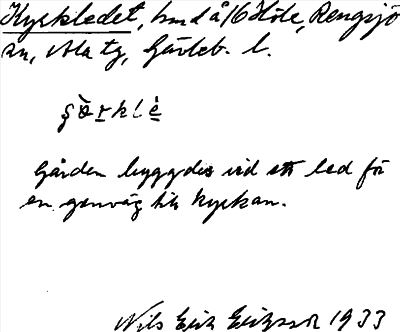 Kyrkledet, hmd å 16 Höle, Rengsjö
sn, Ala tg, Gävleb. l.
Gården byggdes vid ett led för
en genväg till kyrkan.
Nils Erik Eriksson 1933